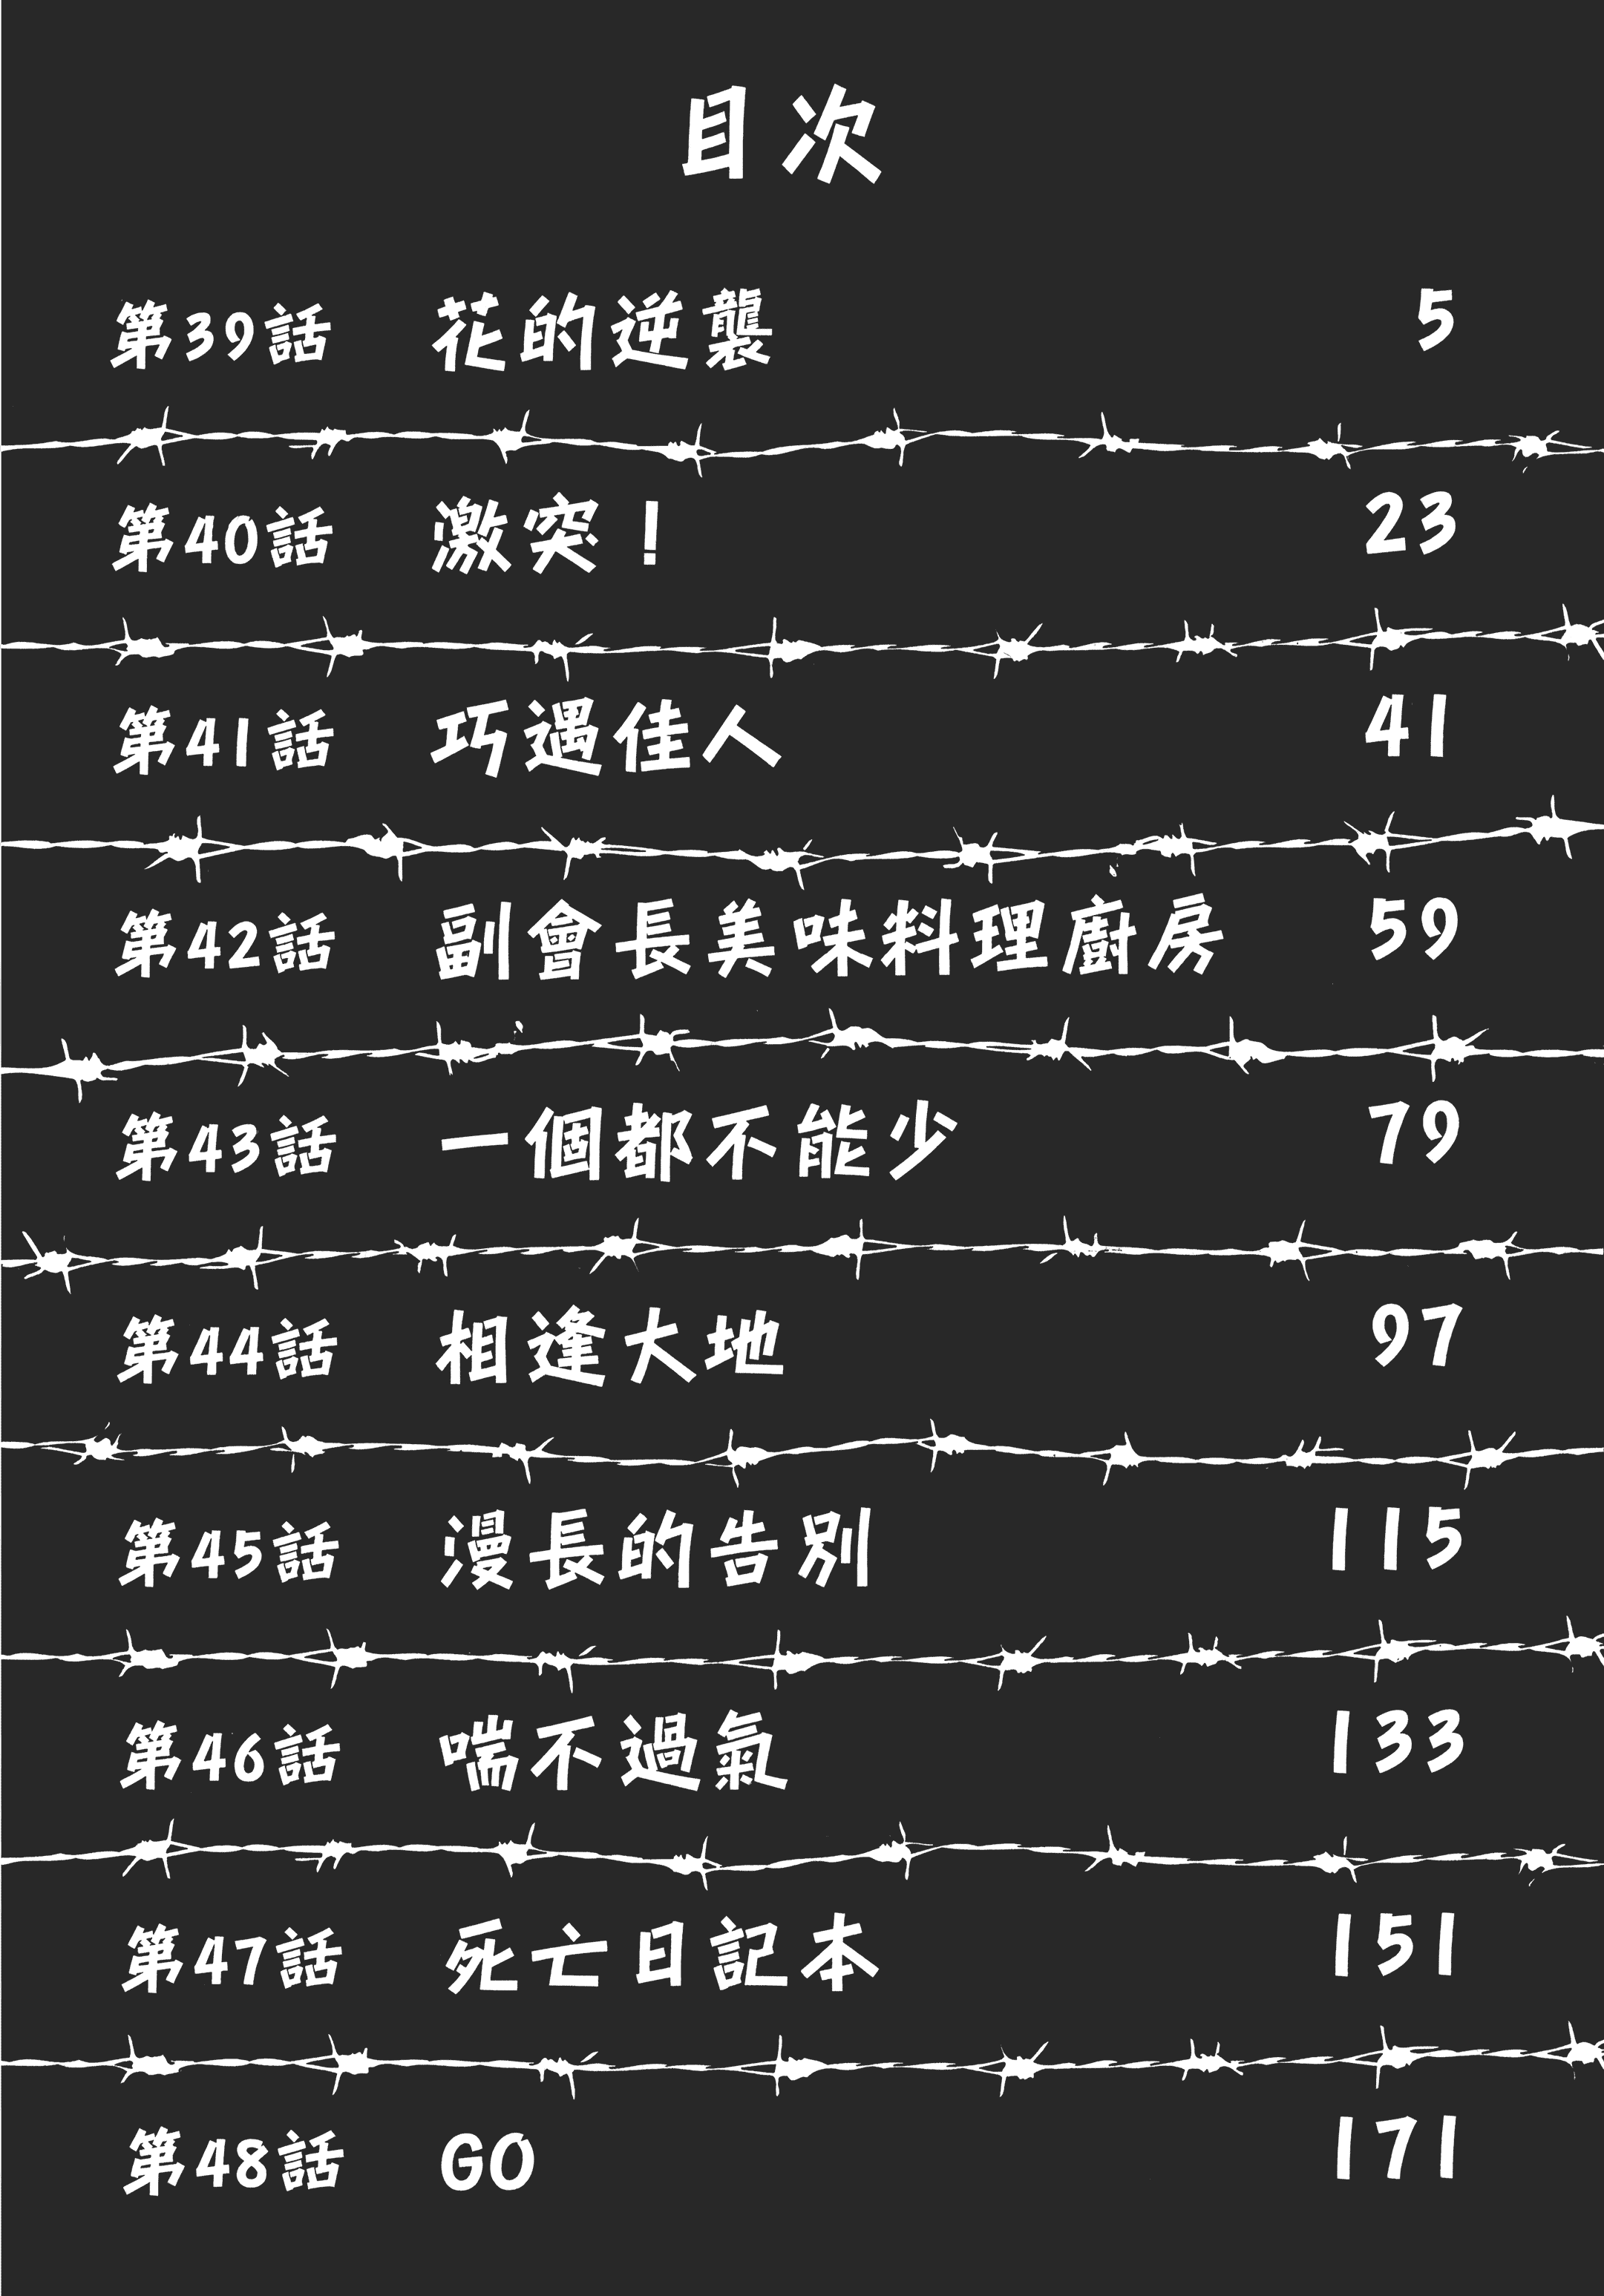 目次
第39話 花的逆襲 5
第40話 激突！ 23
第41話 巧遇佳人 41
第42話 副會長美味料理廚房 59
第43話 一個都不能少 79
第44話 相逢大地 97
第45話 漫長的告別 115
第46話 喘不過氣 133
第47話 死亡日記本 151
第48話 GO 171